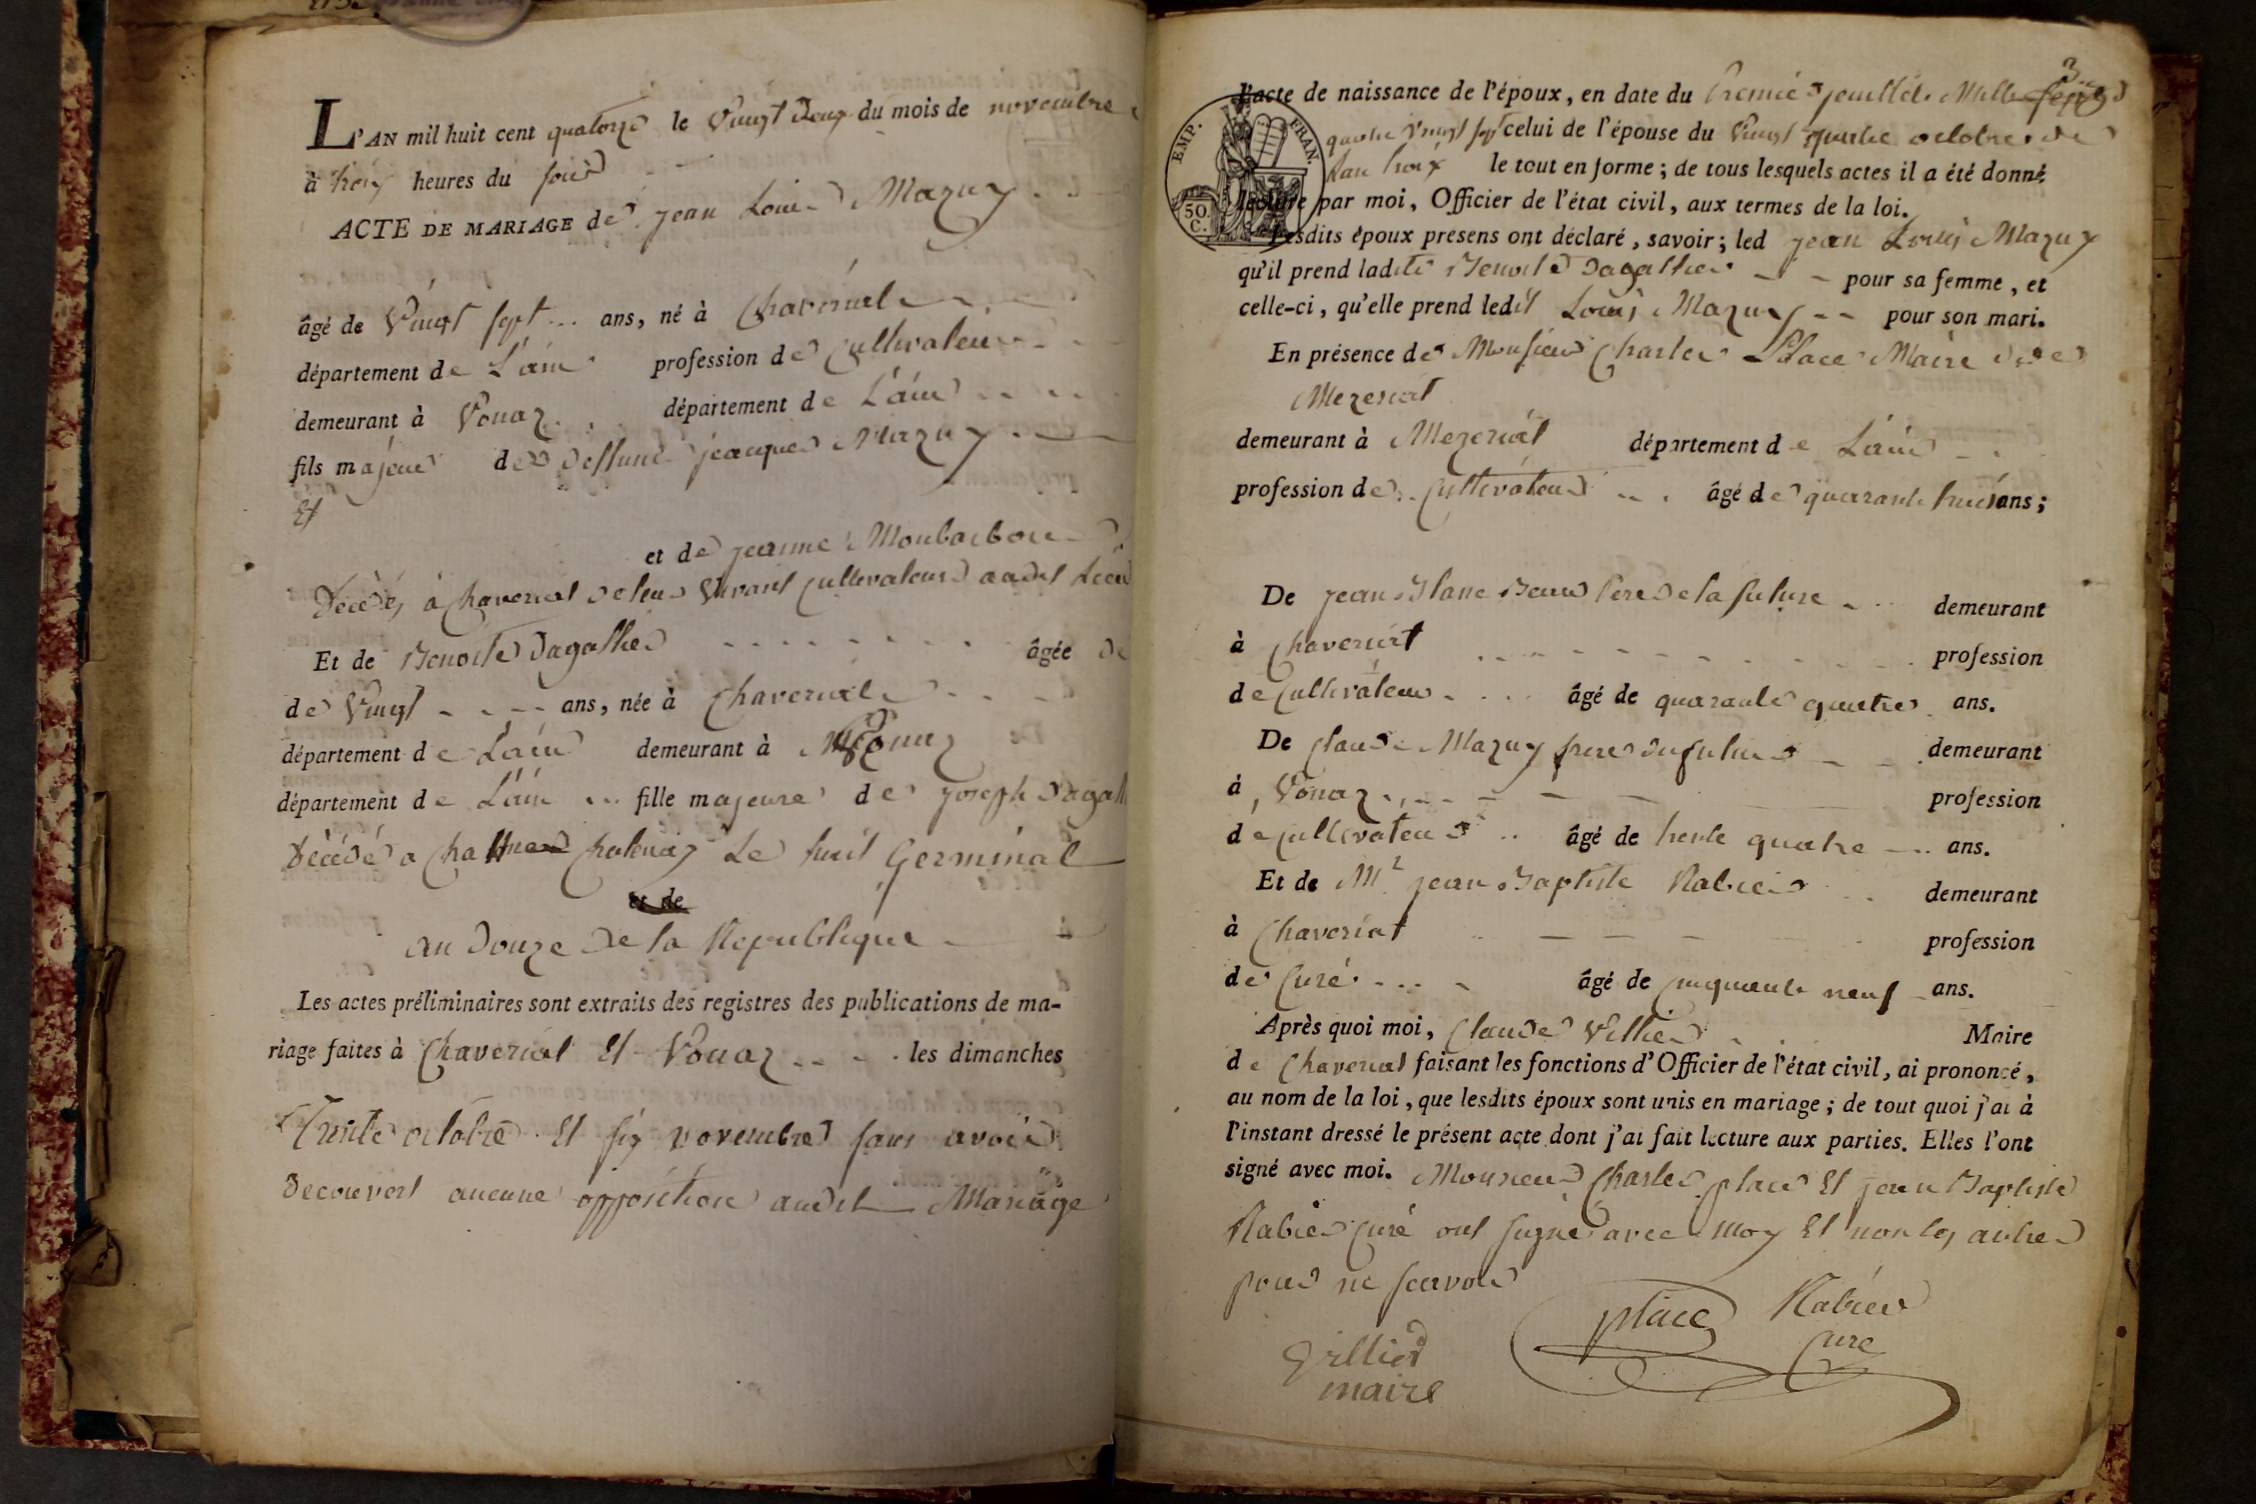 L'AN mil huit cent quatorze le Vingt Deux du mois de novembre
à trois heures du soir
ACTE DE MARIAGE de jean Louis Mazuy
âgé de Vingt sept ... ans, né à Chaveriat
département de L'ain profession de Cultivateur
demeurant à Vonaz département de L'ain
fils majeur de deffunt jeacques Mazuy
Et
et de jeanne Monbarbon
Décédés à Chaveriat de leur Vivant Cultivateurs audit Lieu
Et de Benoite Dagallier âgée de
de Vingt ans, née à Chaveriat
département de L'ain demeurant à Vonaz
département de L'ain ... fille majeure de joseph Dagall
Décédé a Chatenay Le huit Germinal
et de
an Douze de la Republique
Les actes préliminaires sont extraits des registres des publications de ma-
riage faites à Chaveriat Et Vonaz les dimanches
Trente octobre Et six novembre sans avoir
Decouvert aucune opposition audit Mariage
3
l'acte de naissance de l'époux, en date du Premier jeuillet Mille sept
EMP. FRAN.
quatre Vingt sept celui de l'épouse du Vingt quatre octobre de
Lan trois le tout en forme ; de tous lesquels actes il a été donné
50. C.
lecture par moi, Officier de l'état civil, aux termes de la loi.
Lesdits époux presens ont déclaré, savoir ; led jean Louis Mazuy
qu'il prend ladite Benoite Dagallier pour sa femme, et
celle-ci, qu'elle prend ledit Louis Mazuy pour son mari.
En présence de Monsieur Charles Place Maire de
Mezeriat
demeurant à Mezeriat département de L'ain
profession de Cultivateur âgé de quarante huit ans ;
De jean Blanc Beau Pere de la future demeurant
à Chaveriat profession
de Cultivateur âgé de quarante quatre ans.
De Claude Mazuy frere du futur demeurant
à Vonaz profession
de Cultivateur âgé de trente quatre ans.
Et de Mr jean Baptiste Rabier demeurant
à Chaveriat profession
de Curé âgé de Cinquante neuf ans.
Après quoi moi, Claude Villier Maire
de Chaveriat faisant les fonctions d'Officier de l'état civil, ai prononcé,
au nom de la loi, que lesdits époux sont unis en mariage ; de tout quoi j'ai à
l'instant dressé le présent acte dont j'ai fait lecture aux parties. Elles l'ont
signé avec moi. Monsieur Charles place Et jean Baptiste
Rabier Curé ont signé avec moy Et non les autres
pour ne scavoir
place Rabier
Curé
Villier
maire